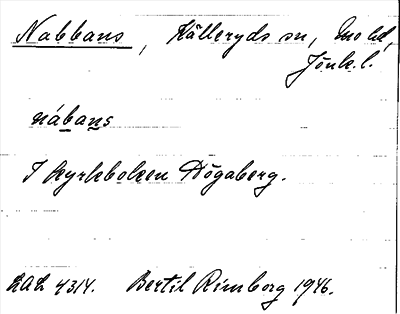 Nabbans, Källeryds sn, Mo hd,
Jönk. l.
nábans
I kyrkboken Högaberg.
LAL 4314. Bertil Rimborg 1946.